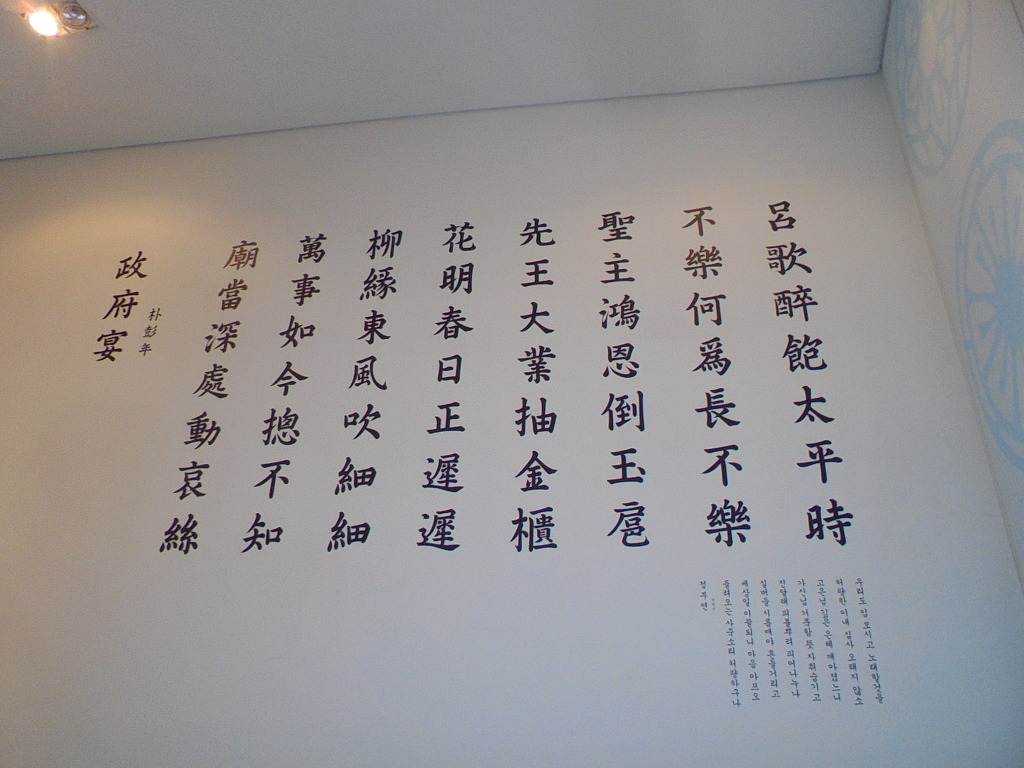 政府宴
朴彭年
廟當深處動哀絲
萬事如今摠不知
柳緣東風吹細細
花明春日正遲遲
先王大業抽金櫃
聖主鴻恩倒玉扈
不樂何爲長不樂
呂歌醉飽太平時
정부연
들려오는 사죽소리 처량하구나
세상일 이몰되니 마음 아프오
실버들 시름매야 흔들거리고
진달래 피를뿌려 피어나누나
가신님 거룩할 뜻 자취숨기고
고은님 깊은 은혜 깨야졌느니
처량한 이내 심사 오래지 않소
우리도 임 모시고 노래할것을